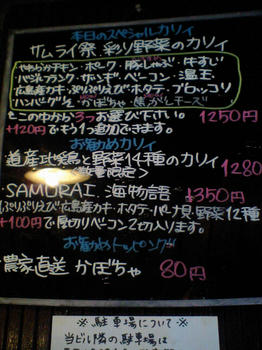 本日のスペシャルカリィ
サムライ祭 彩り野菜のカリィ
・やわらかチキン・ポーク・豚しゃぶ・はすい
・パジルフランク・ザンギ・ベーコン・温玉
・広島産カキ・ぷりぷりえび・ホタテ・ブロッコリ
・ハンバーグ1/2・かぼちゃ・焦がしチーズ
この中から3つお選び下さい。 1250円
+120円でもう1つ追加できます。
お勧めカリィ
・道産地鶏と野菜14種のカリィ
<数量限定> 1280
・SAMURAI. 海物語 1350円
ぷりぷりえび広島産カキ・ホタテ・パーナ貝・野菜12種
+100円で厚切りベーコン2ケ入ります。
お勧めトッピング
・農家直送 かぼちゃ 80円
※ 駐車場について ※
当ビル隣の駐車場は